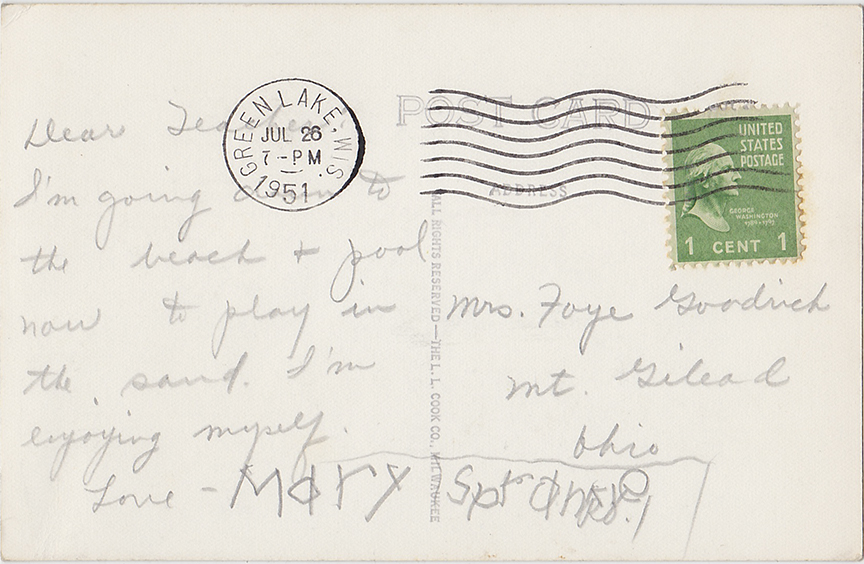 POST CARD
GREEN LAKE, WIS.
JUL 26
7 - PM
1951
UNITED
STATES
POSTAGE
GEORGE
WASHINGTON
1 CENT 1
ADDRESS
Dear Teacher
I'm going down to
the beach + pool
now to play in
the sand. I'm
enjoying myself.
Love - Mary
Mrs. Foye Goodrich
Mt. Gilead
Ohio
ALL RIGHTS RESERVED—THE L. L. COOK CO., MILWAUKEE